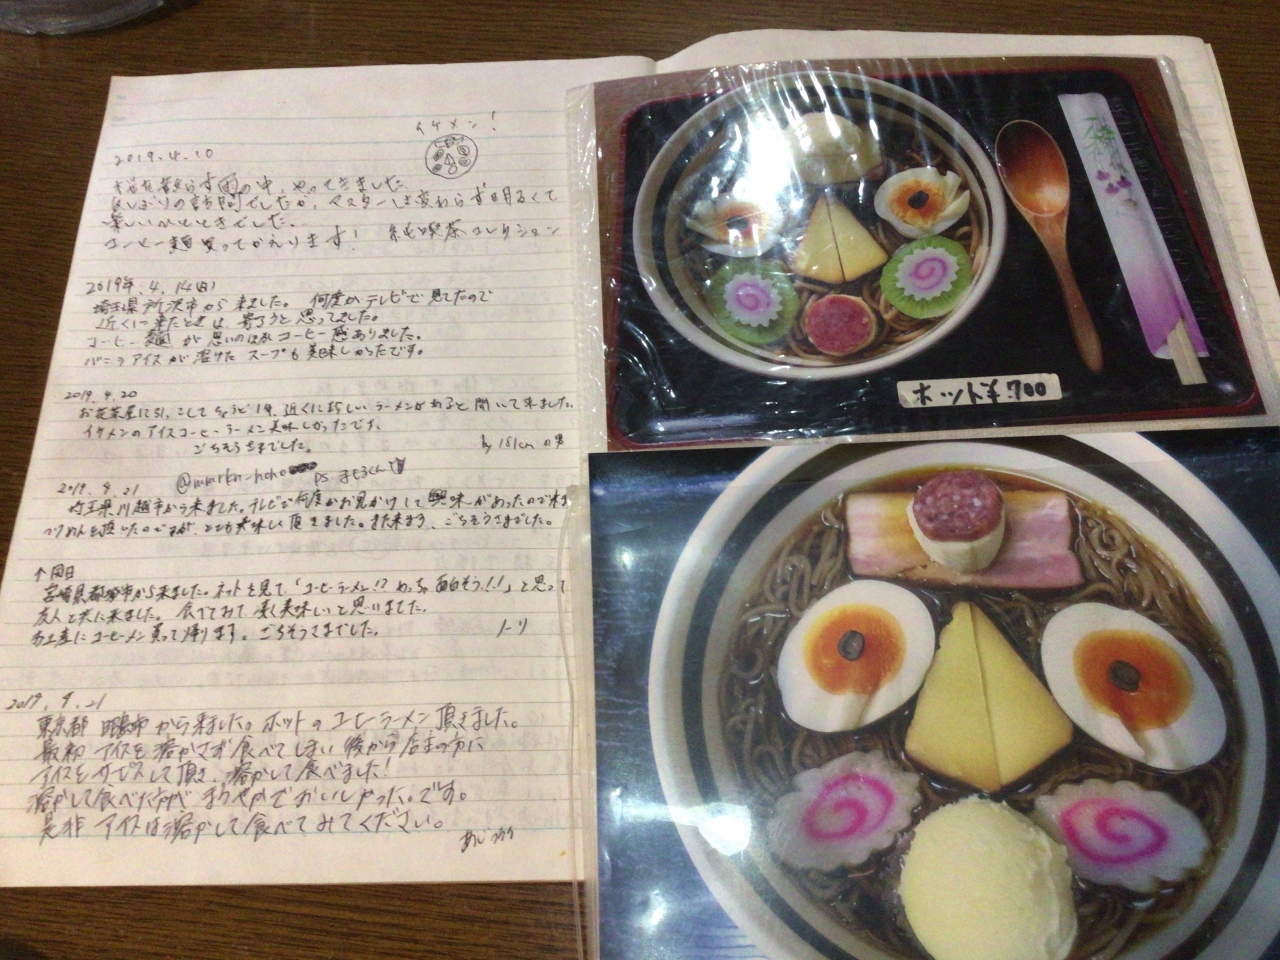 イケメン!
2019.4.10
雨の中、やってきました。
久しぶりの訪問でしたが、マスターは変わらず明るくて
楽しいひとときでした。
コーヒー麺買ってかえります! 純喫茶コレクション
2019年.4.14(日)
埼玉県所沢市から来ました。 何度かテレビで見てたので
近くに来たときは、寄ろうと思ってました。
コーヒー麺が思いのほかコーヒー感ありました。
バニラアイスが溶けたスープも美味しかったです。
2019.4.20
お花茶屋に引っこしてちょうど1年、近くに珍しいラーメンがあると聞いて来ました。
イケメンのアイスコーヒーラーメン美味しかったです。
ごちそうさまでした。 by 181cmの男
2019.4.21
埼玉県川越市から来ました。テレビで何度かお見かけして興味があったので
つけめんを頂いたのですが、とても美味しく頂きました。また来ます。ごちそうさまでした。
↑同日
宮崎県都城市から来ました。ネットを見て、「コーヒーラーメン!? めっちゃ面白そう!!」と思って
友人と共に来ました。食べてみて凄く美味しいと思いました。
お土産にコーヒーメン買って帰ります。ごちそうさまでした。
2019.4.21
東京都 昭島市から来ました。ホットのコーヒーラーメン頂きました。
最初アイスを溶かさず食べてしまい後から店主の方に
アイスをサービスして頂き、溶かして食べました!
溶かして食べた方がまろやかでおいしかったです。
是非アイスは溶かして食べてみてください。
ホット¥700